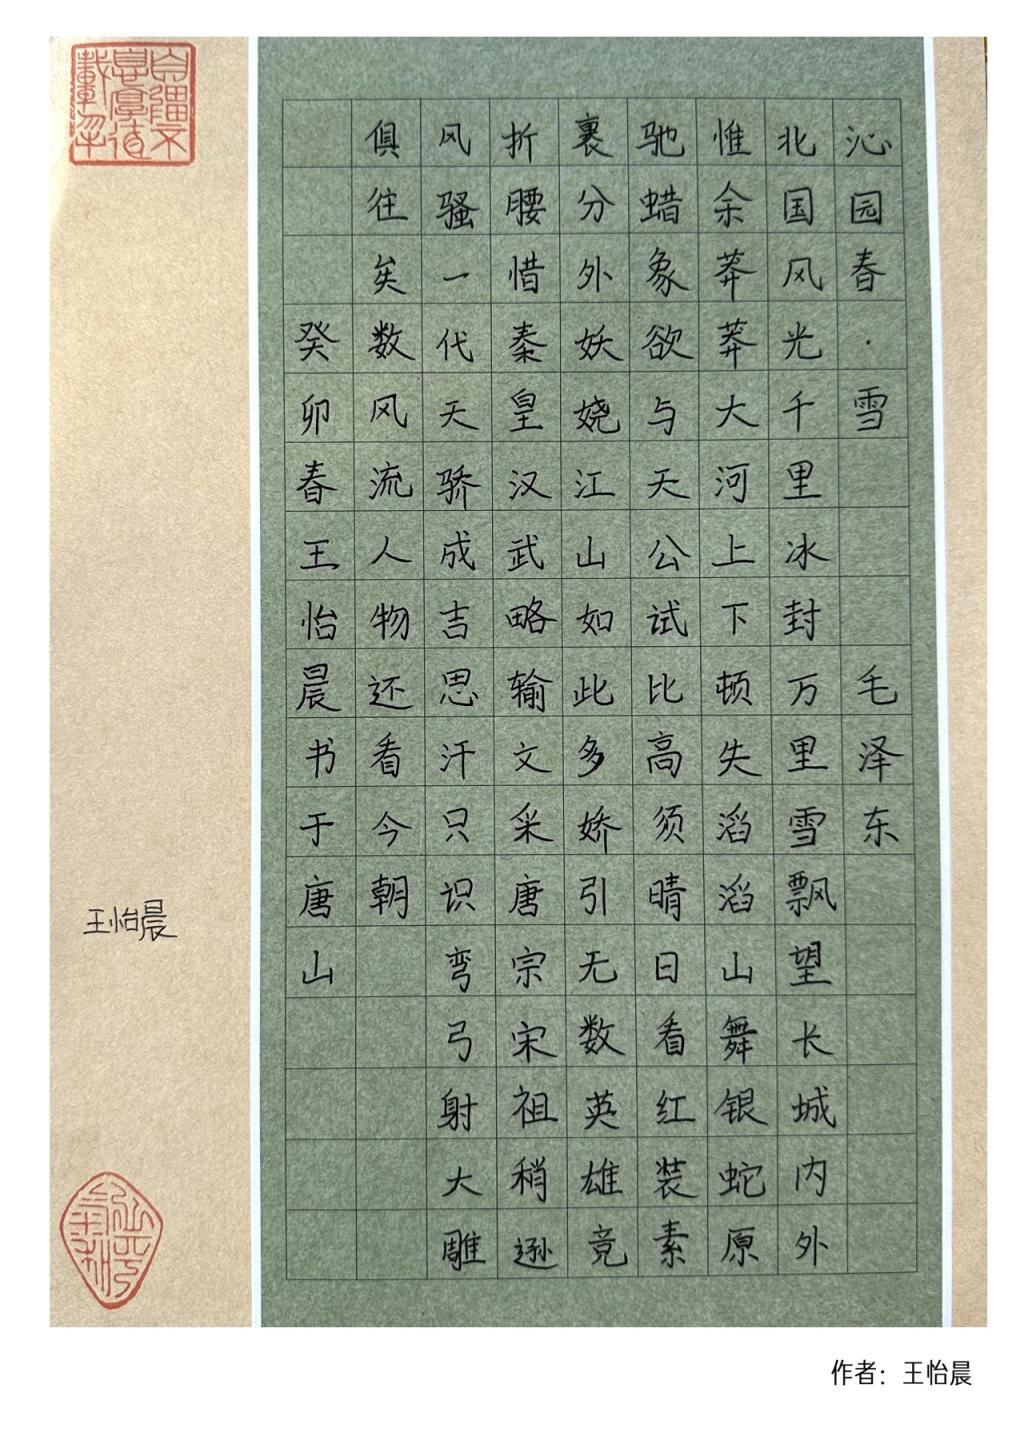 沁园春·雪 毛泽东
北国风光千里冰封万里雪飘望长城内外
惟余莽莽大河上下顿失滔滔山舞银蛇原
驰蜡象欲与天公试比高须晴日看红装素
裹分外妖娆江山如此多娇引无数英雄竞
折腰惜秦皇汉武略输文采唐宗宋祖稍逊
风骚一代天骄成吉思汗只识弯弓射大雕
俱往矣数风流人物还看今朝
癸卯春王怡晨书于唐山
王怡晨
作者：王怡晨